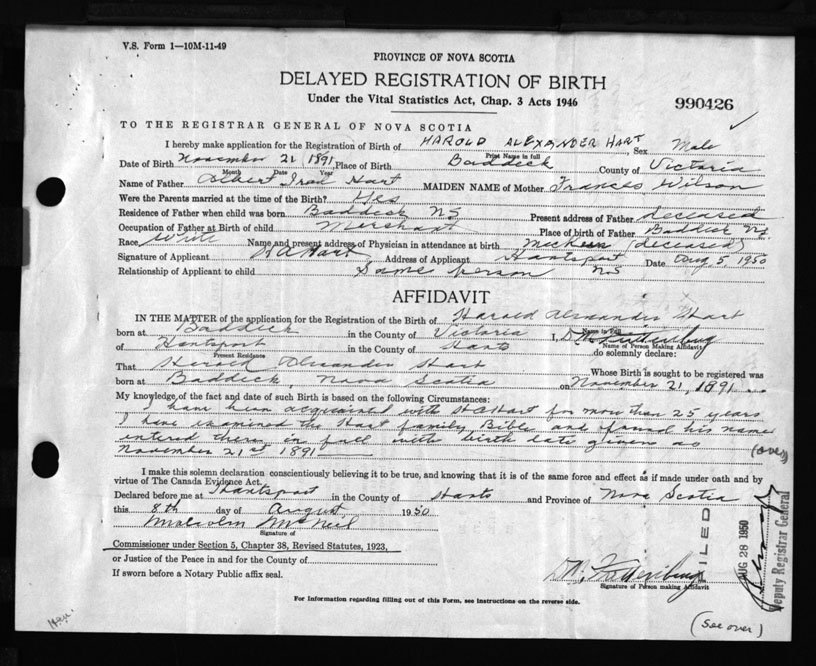 V.S. Form 1—10M-11-49
PROVINCE OF NOVA SCOTIA
DELAYED REGISTRATION OF BIRTH
Under the Vital Statistics Act, Chap. 3 Acts 1946
990426
TO THE REGISTRAR GENERAL OF NOVA SCOTIA
I hereby make application for the Registration of Birth of HAROLD ALEXANDER HART, Sex Male
Print Name in full
Date of Birth November 21 1891 Place of Birth Baddeck County of Victoria
Month Date Year
Name of Father Albert Hart MAIDEN NAME of Mother Frances Wilson
Were the Parents married at the time of the Birth? Yes
Residence of Father when child was born Baddeck NS Present address of Father deceased
Occupation of Father at Birth of child Merchant Place of birth of Father Baddeck NS
Race White Name and present address of Physician in attendance at birth (deceased)
Signature of Applicant HA Hart, Address of Applicant Hantsport NS Date Aug 5, 1950
Relationship of Applicant to child Same person
AFFIDAVIT
IN THE MATTER of the application for the Registration of Birth of Harold Alexander Hart
Name in Full
born at Baddeck in the County of Victoria I,
Name of Person Making Affidavit
of Hantsport in the County of Hants do solemnly declare:
Present Residence
That Harold Alexander Hart Whose Birth is sought to be registered was
born at Baddeck, Nova Scotia on November 21, 1891
My knowledge of the fact and date of such Birth is based on the following Circumstances:
I have been acquainted with HA Hart for more than 25 years
I have examined the Hart family Bible and found his name
entered there in full with birth date given as (over)
November 21st 1891
I make this solemn declaration conscientiously believing it to be true, and knowing that it is of the same force and effect as if made under oath and by
virtue of The Canada Evidence Act.
Declared before me at Hantsport in the County of Hants and Province of Nova Scotia
this 8th day of August 1950
Malcolm McNeil
Signature of
Commissioner under Section 5, Chapter 38, Revised Statutes, 1923,
or Justice of the Peace in and for the County of
If sworn before a Notary Public affix seal.
Signature of Person making Affidavit
FILED
AUG 28 1950
Deputy Registrar General
For Information regarding filling out of this Form, see instructions on the reverse side.
(see over)